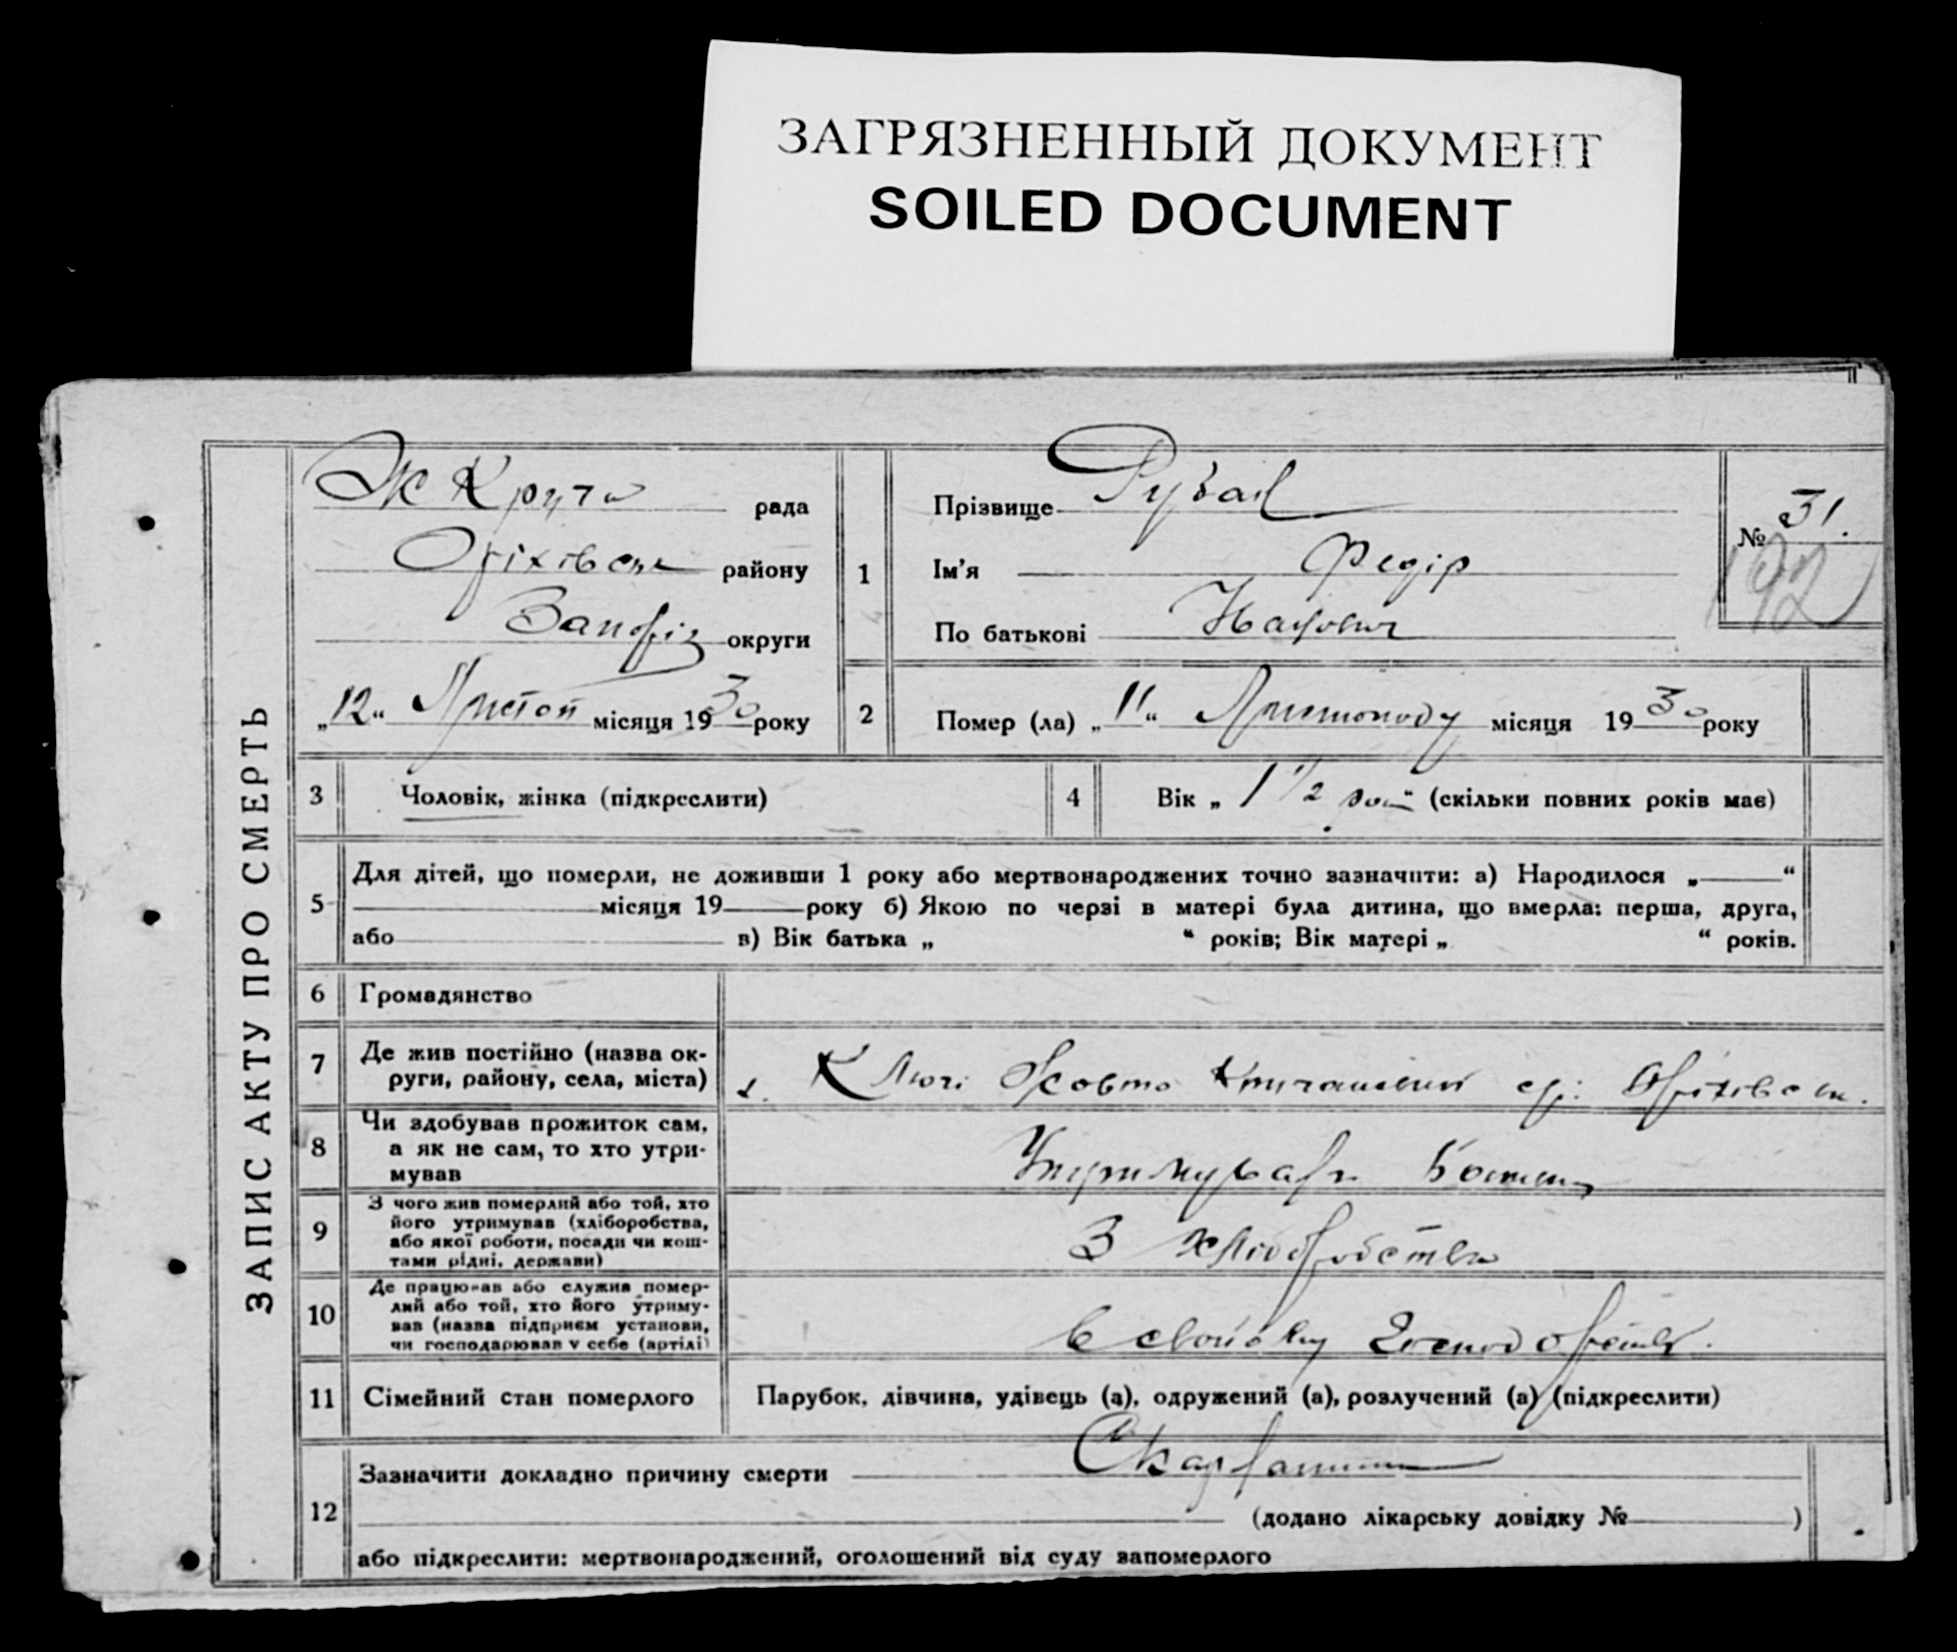 ЗАГРЯЗНЕННЫЙ ДОКУМЕНТ
SOILED DOCUMENT
ЗАПИС АКТУ ПРО СМЕРТЬ
рада
району
округи
„12“ Листоп місяця 1930 року
1
Прізвище
Ім'я Федір
По батькові
№ 31.
192
2
Помер (ла) „11“ Листопаду місяця 1930 року
3 Чоловік, жінка (підкреслити)
4 Вік „1 1/2 рок“ (скільки повних років має)
5
Для дітей, що померли, не доживши 1 року або мертвонароджених точно зазначити: а) Народилося „ “
місяця 19 року б) Якою по черзі в матері була дитина, що вмерла: перша, друга,
або в) Вік батька „ “ років; Вік матері „ “ років.
6 Громадянство
7
Де жив постійно (назва ок-
руги, району, села, міста)
8
Чи здобував прожиток сам,
а як не сам, то хто утри-
мував
9
З чого жив померлий або той, хто
його утримував (хліборобства,
або якої роботи, посади чи кош-
тами рідні, держави)
З хліборобства
10
Де працював або служив помер-
лий або той, хто його утриму-
вав (назва підприєм установи,
чи господарював у себе (артілі)
11 Сімейний стан померлого
Парубок, дівчина, удівець (а), одружений (а), розлучений (а) (підкреслити)
12
Зазначити докладно причину смерти
(додано лікарську довідку № )
або підкреслити: мертвонароджений, оголошений від суду запомерлого